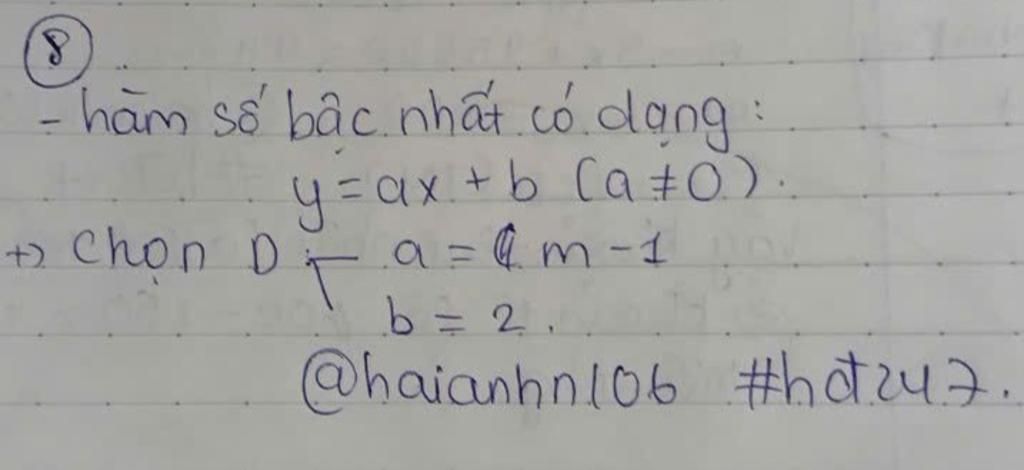 8
- hàm số bậc nhất có dạng:
y = ax + b (a ≠ 0).
+) Chọn D a = m - 1
b = 2.
@haianhn106 #hđ247.